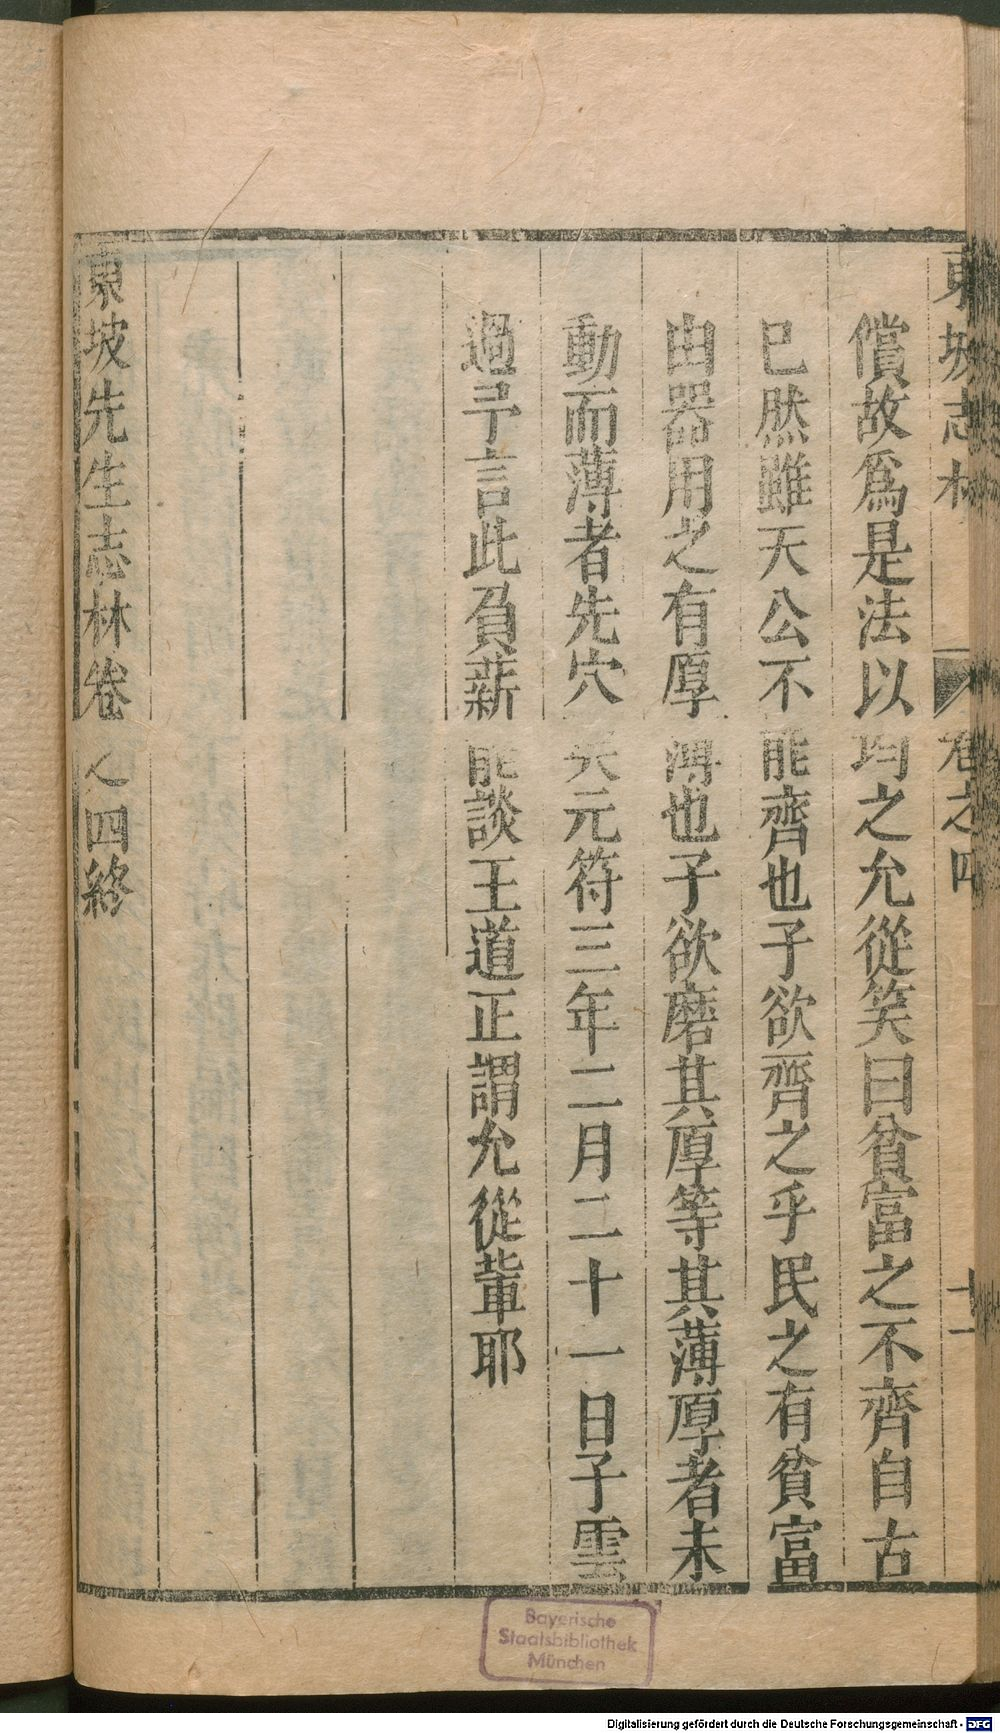 東坡志林 卷之四 十一
償故爲是法以均之允從笑曰貧富之不齊自古
已然雖天公不能齊也子欲齊之乎民之有貧富
由器用之有厚薄也子欲磨其厚等其薄厚者未
動而薄者先穴矣元符三年二月二十一日子雲
過予言此負薪能談王道正謂允從輩耶
東坡先生志林卷之四終
Bayerische
Staatsbibliothek
München
Digitalisierung gefördert durch die Deutsche Forschungsgemeinschaft - DFG